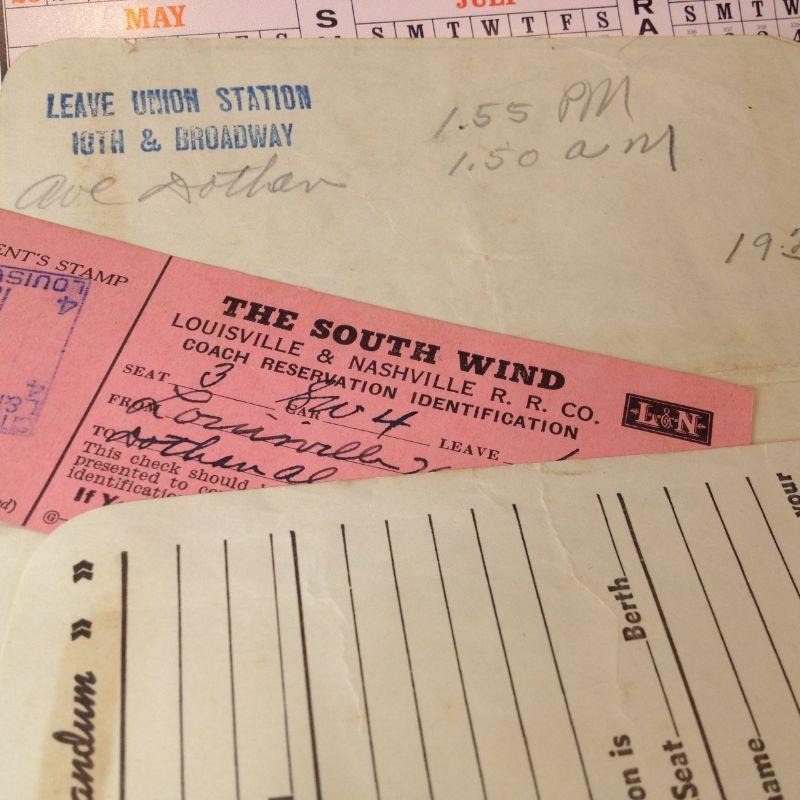 MAY
S
JULY
RA
S M T W T F S
S M T W
LEAVE UNION STATION
10TH & BROADWAY
1.55 PM
1.50 am
Ave Dothan
19
ENT'S STAMP
LOUISV
4
THE SOUTH WIND
LOUISVILLE & NASHVILLE R. R. CO.
COACH RESERVATION IDENTIFICATION
L&N
SEAT 3 CAR SW 4 LEAVE
FROM Louisville
TO Dothan al
This check should
presented to co
identific
If Y
andum » »
on is
Berth
Seat
ame
your